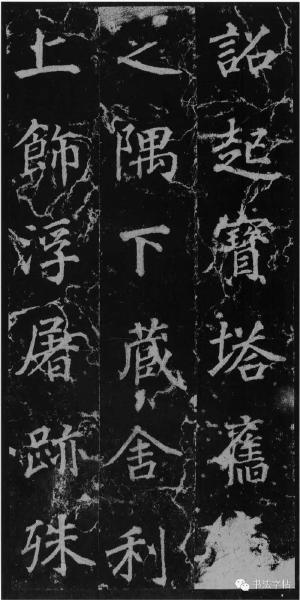 詔起寶塔舊
之隅下蔵舍利
上飾浮屠跡殊
书法字帖